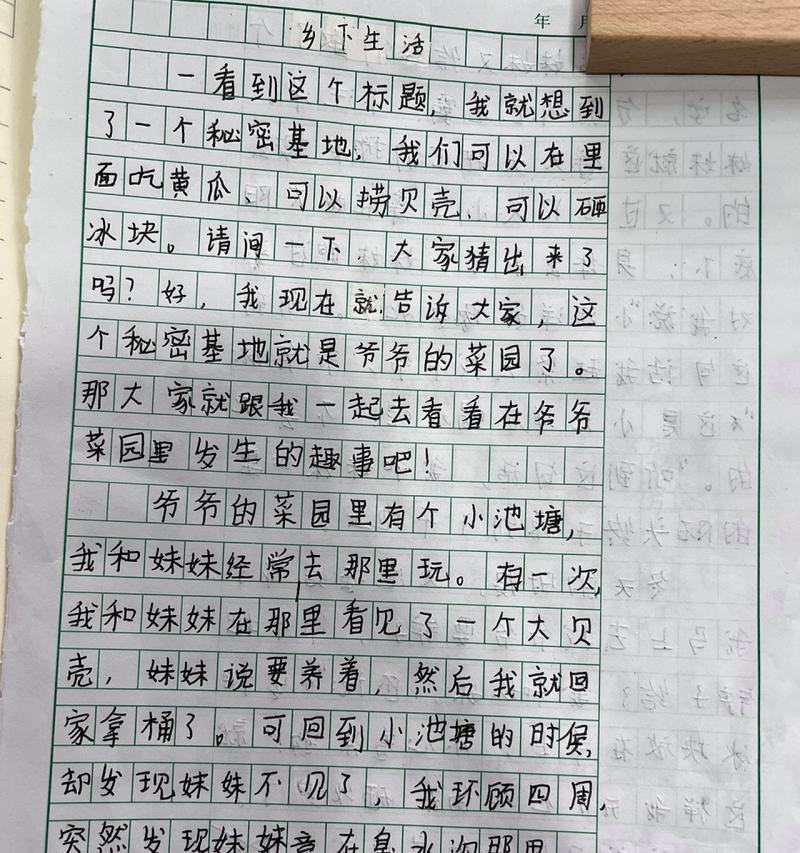 年 月
乡下生活
一看到这个标题，我就想到
了一个秘密基地，我们可以在里
面吃黄瓜、可以捞贝壳、可以砸
冰块。请问一下，大家猜出来了
吗？好，我现在就告诉大家，这
个秘密基地就是爷爷的菜园了。
那大家就跟我一起去看看在爷爷
菜园里发生的趣事吧！
爷爷的菜园里有个小池塘，
我和妹妹经常去那里玩。有一次，
我和妹妹在那里看见了一个大贝
壳，妹妹说要养着，然后我就回
家拿桶了。可回到小池塘的时候，
却发现妹妹不见了，我环顾四周，
突然发现妹妹竟在臭水沟那里